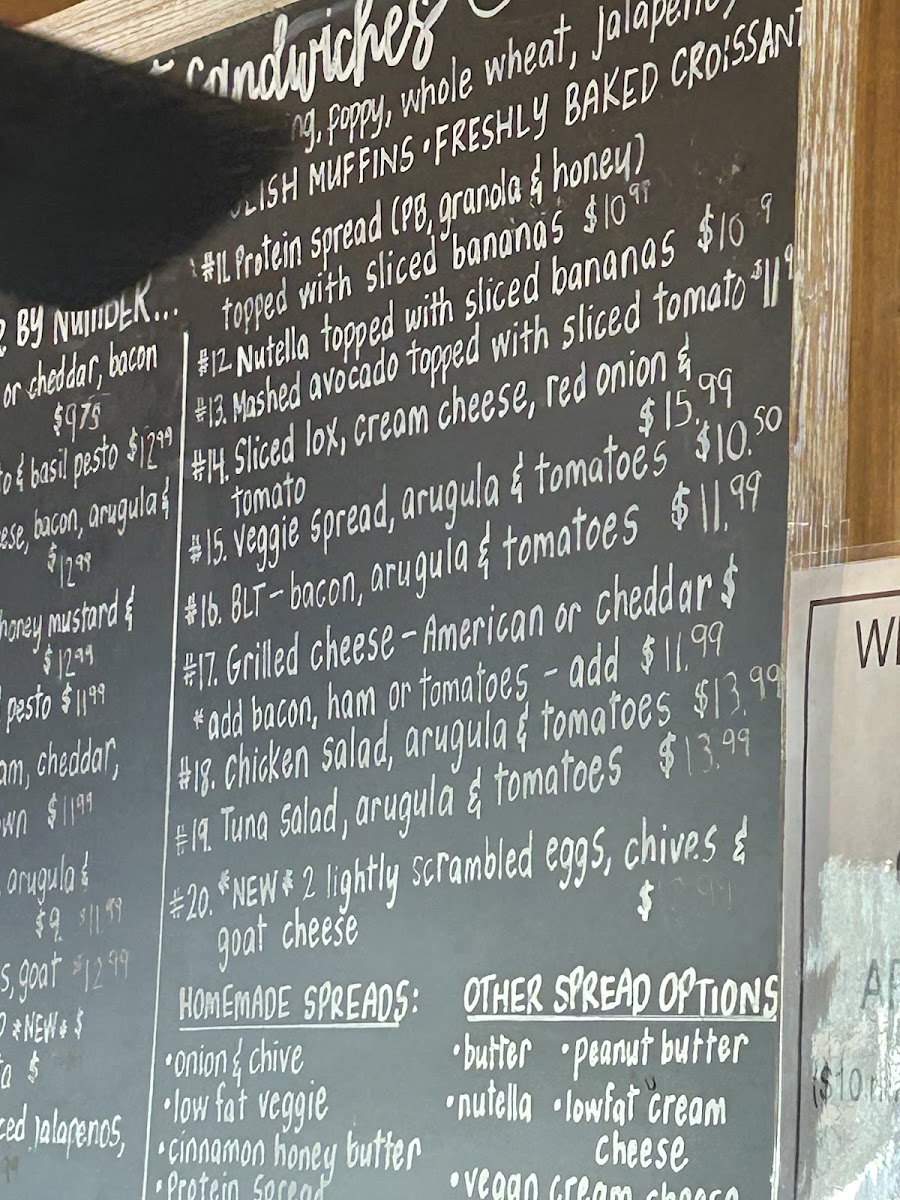 sandwiches
poppy, whole wheat, jalapeno,
MUFFINS • FRESHLY BAKED CROISSANT
BY NUMBER...
or cheddar, bacon
$9.75
& basil pesto $12.99
bacon, arugula &
$12.99
honey mustard &
$12.99
pesto $11.99
cheddar,
$11.99
arugula &
$9 $11.99
goat $12.99
*NEW* $
$
jalapenos,
#11. Protein spread (PB, granola & honey)
topped with sliced bananas $10.99
#12. Nutella topped with sliced bananas $10.9
#13. Mashed avocado topped with sliced tomato $11.9
#14. Sliced lox, cream cheese, red onion &
tomato $15.99
#15. Veggie spread, arugula & tomatoes $10.50
#16. BLT - bacon, arugula & tomatoes $11.99
#17. Grilled cheese - American or cheddar $
*add bacon, ham or tomatoes - add $11.99
#18. Chicken salad, arugula & tomatoes $13.99
#19. Tuna salad, arugula & tomatoes $13.99
#20. *NEW* 2 lightly scrambled eggs, chives &
goat cheese $
HOMEMADE SPREADS:
• onion & chive
• low fat veggie
• cinnamon honey butter
• Protein spread
OTHER SPREAD OPTIONS
• butter • peanut butter
• nutella • lowfat cream
cheese
• vegan cream cheese